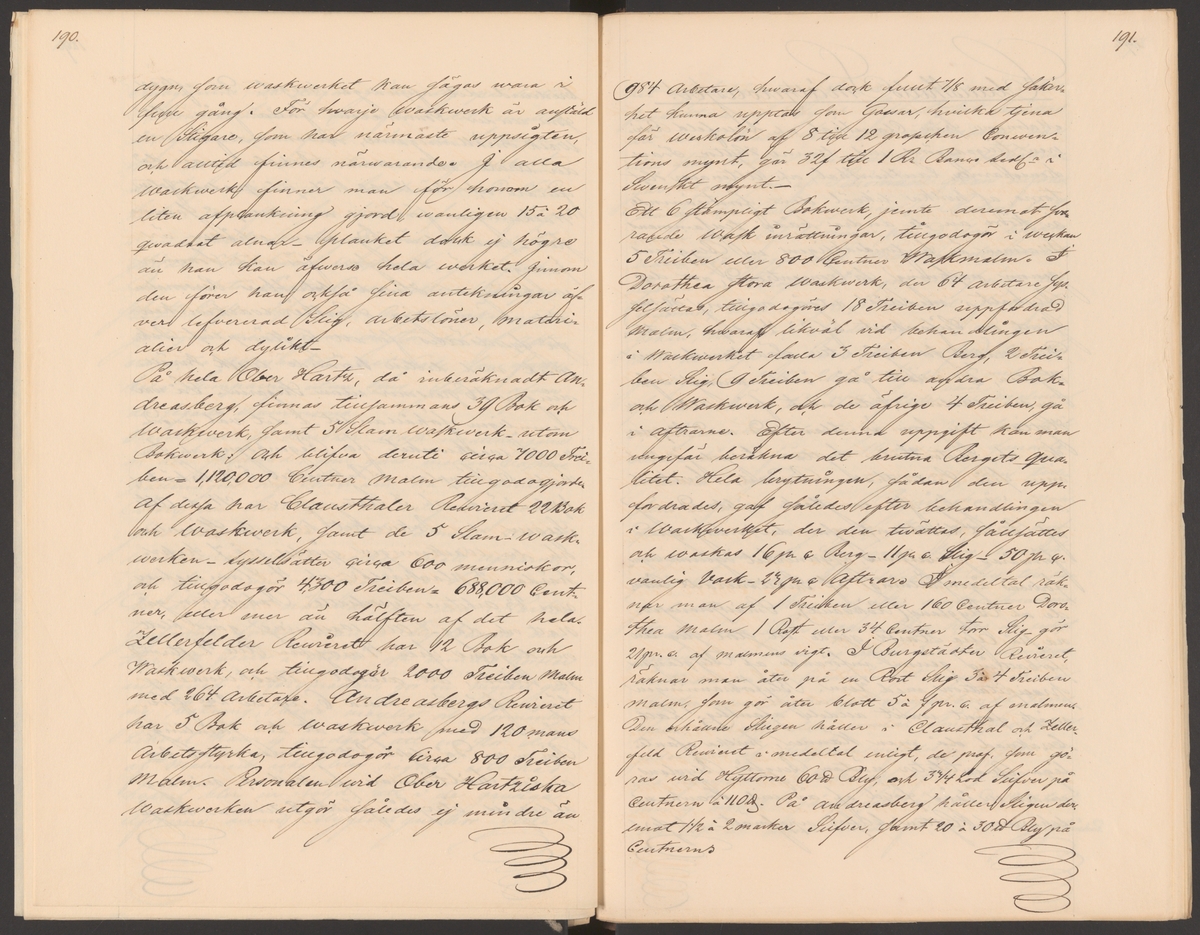 190.
dygn, som waskwerket kan sägas wara i
full gång. För hwarje Waskwerk är anstäld
en Stigare, som har närmaste uppsigten,
och alltid finnes närwarande. J alla
Waskwerk finner man för honom en
liten afplankning gjord, wanligen 15 à 20
qvadrat alnar – planket dock ej högre
än han kan öfwerse hela werket. Jnnom
den förer han också sina antekningar öf-
ver lefvererad Slig, arbetslöner, materi-
alier och dylikt –
På hela Ober Hartz, då inberäknadt An-
dreasberg, finnas tillsammans 39 Bok och
Waskwerk, samt 5 Slam Waskwerk – utom
Bokwerk; och blifva deruti circa 7000 Trei-
ben = 1,120,000 Centner Malm tillgodogjorde
Af dessa har Clausthaler Revieret 22 Bok
och Waskwerk, samt de 5 Slam-wask-
werken – sysselsätter circa 600 menniskor,
och tillgodogör 4300 Treiben = 688,000 Cent-
ner, eller mer än hälften af det hela.
Zellerfelder Revieret har 12 Bok och
Waskwerk, och tillgodogör 2000 Treiben Malm
med 264 Arbetare. Andreasbergs Revieret
har 5 Bok och Waskwerk med 120 mans
Arbetsstyrka, tillgodogör circa 800 Treiben
Malm. Personalen wid Ober Hartziska
Waskwerken utgör således ej mindre än
191.
984 Arbetare, hwaraf dock fullt 7/8 med säker-
het kunna upptas som Gossar, hvilka tjena
för Werkolön af 8 till 12 groschen Conven-
tions mynt, gör 32 f till 1 Rd Banco sedl. i
Swenskt mynt. –
Ett 6 stämpligt Bokwerk, jemte deremot swa-
rande Wask inrättningar, tillgodogör i weckan
5 Treiben eller 800 Centner Waskmalm. I
Dorothea stora Waskwerk, der 64 arbetare sys-
selsättes, tillgodogöres 18 Treiben uppfordrad
Malm, hwaraf likväl vid behandlingen
i Waskwerket falla 3 Treiben Berg, 2 Trei-
ben Slig, 9 Treiben gå till andra Bok-
och Waskwerk, och de öfrige 4 Treiben, gå
i aftrarne. Efter denna uppgift kan man
ungefär beräkna det brutna Bergets qua-
litet. Hela brytningen, sådan den upp-
fordrades, gaf således efter behandlingen
i Waskwerket, der den twättas, sållsättes
och waskas 16 pr c. Berg – 11 pr c. Slig – 50 pr c.
vanlig Vask – 22 pr c Aftrar. I medeltal räk-
nar man af 1 Treiben eller 160 Centner Doro-
thea Malm 1 Rost eller 34 Centner torr Slig gör
21 pr. c. af malmens vigt. I Burgstädter Revieret,
räknar man åter på en Rost Slig 3 à 4 Treiben
malm, som gör åter blott 5 à 7 pr. c. af malmen.
Den erhållne Sligen håller i Clausthal och Zeller-
feld Revieret i medeltal enligt, de prof, som gö-
ras wid Hyttorne 60 ℔ Bly, och 3 1/4 Lod Silfver på
Centnern à 110 ℔. På Andreasberg håller Sligen der-
emot 1 1/2 à 2 marker Silfver, samt 20 à 30 ℔ Bly på
Centnern.